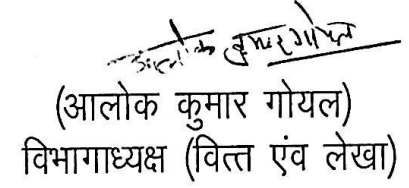 आलोक कुमार गोयल
(आलोक कुमार गोयल)
विभागाध्यक्ष (वित्त एंव लेखा)